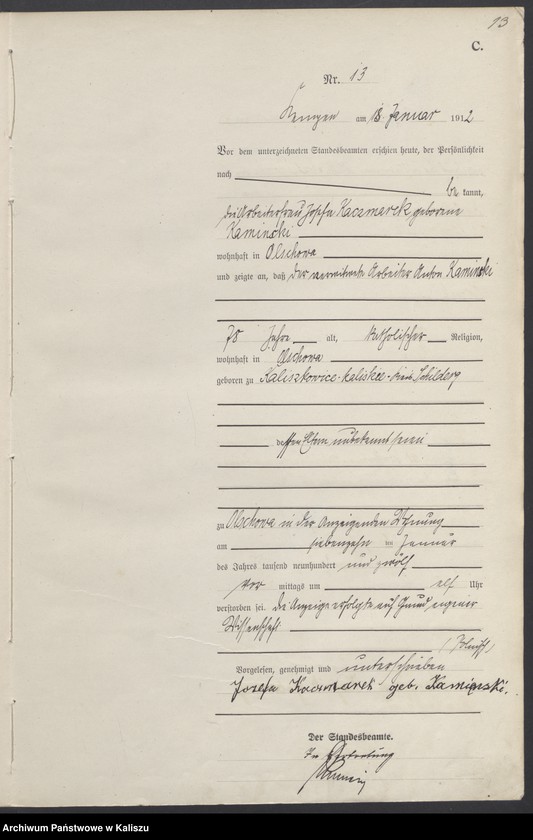 13
C.
Nr. 13
Kempen am 18 Januar 1912
Vor dem unterzeichneten Standesbeamten erschien heute, der Persönlichkeit
nach
be kannt,
die Arbeiterfrau Josefa Kaczmarek geborene
Kaminski
wohnhaft in Olschowa
und zeigte an, daß der verwitwete Arbeiter Anton Kaminski
78 Jahre alt, katholischer Religion,
wohnhaft in Olschowa
geboren zu Kaliszkowice-kaliskie Kreis Schildberg
dessen Eltern unbekannt seien
zu Olschowa in der Anzeigenden Wohnung
am siebenzehn ten Januar
des Jahres tausend neunhundert und zwölf
Vor mittags um elf Uhr
verstorben sei. Die Anzeige erfolgte auf Grund eigener
Wissenschaft.
Vorgelesen, genehmigt und unterschrieben
Josefa Kaczmarek geb. Kamiński.
Der Standesbeamte.
In Vertretung
Archiwum Państwowe w Kaliszu